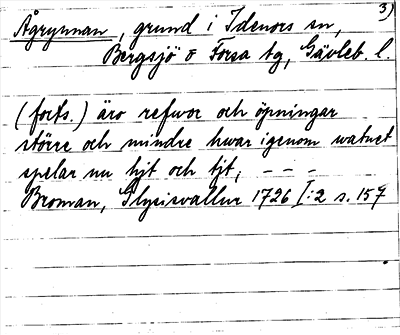 3)
Ågrynnan, grund i Idenors sn,
Bergsjö o Forsa tg, Gävleb. l.
(forts.) äro refwor och öpningar
större och mindre hwar igenom watnet
spelar nu hjt och tjt, – – –
Broman, Glysisvallur 1726 I:2 s. 157